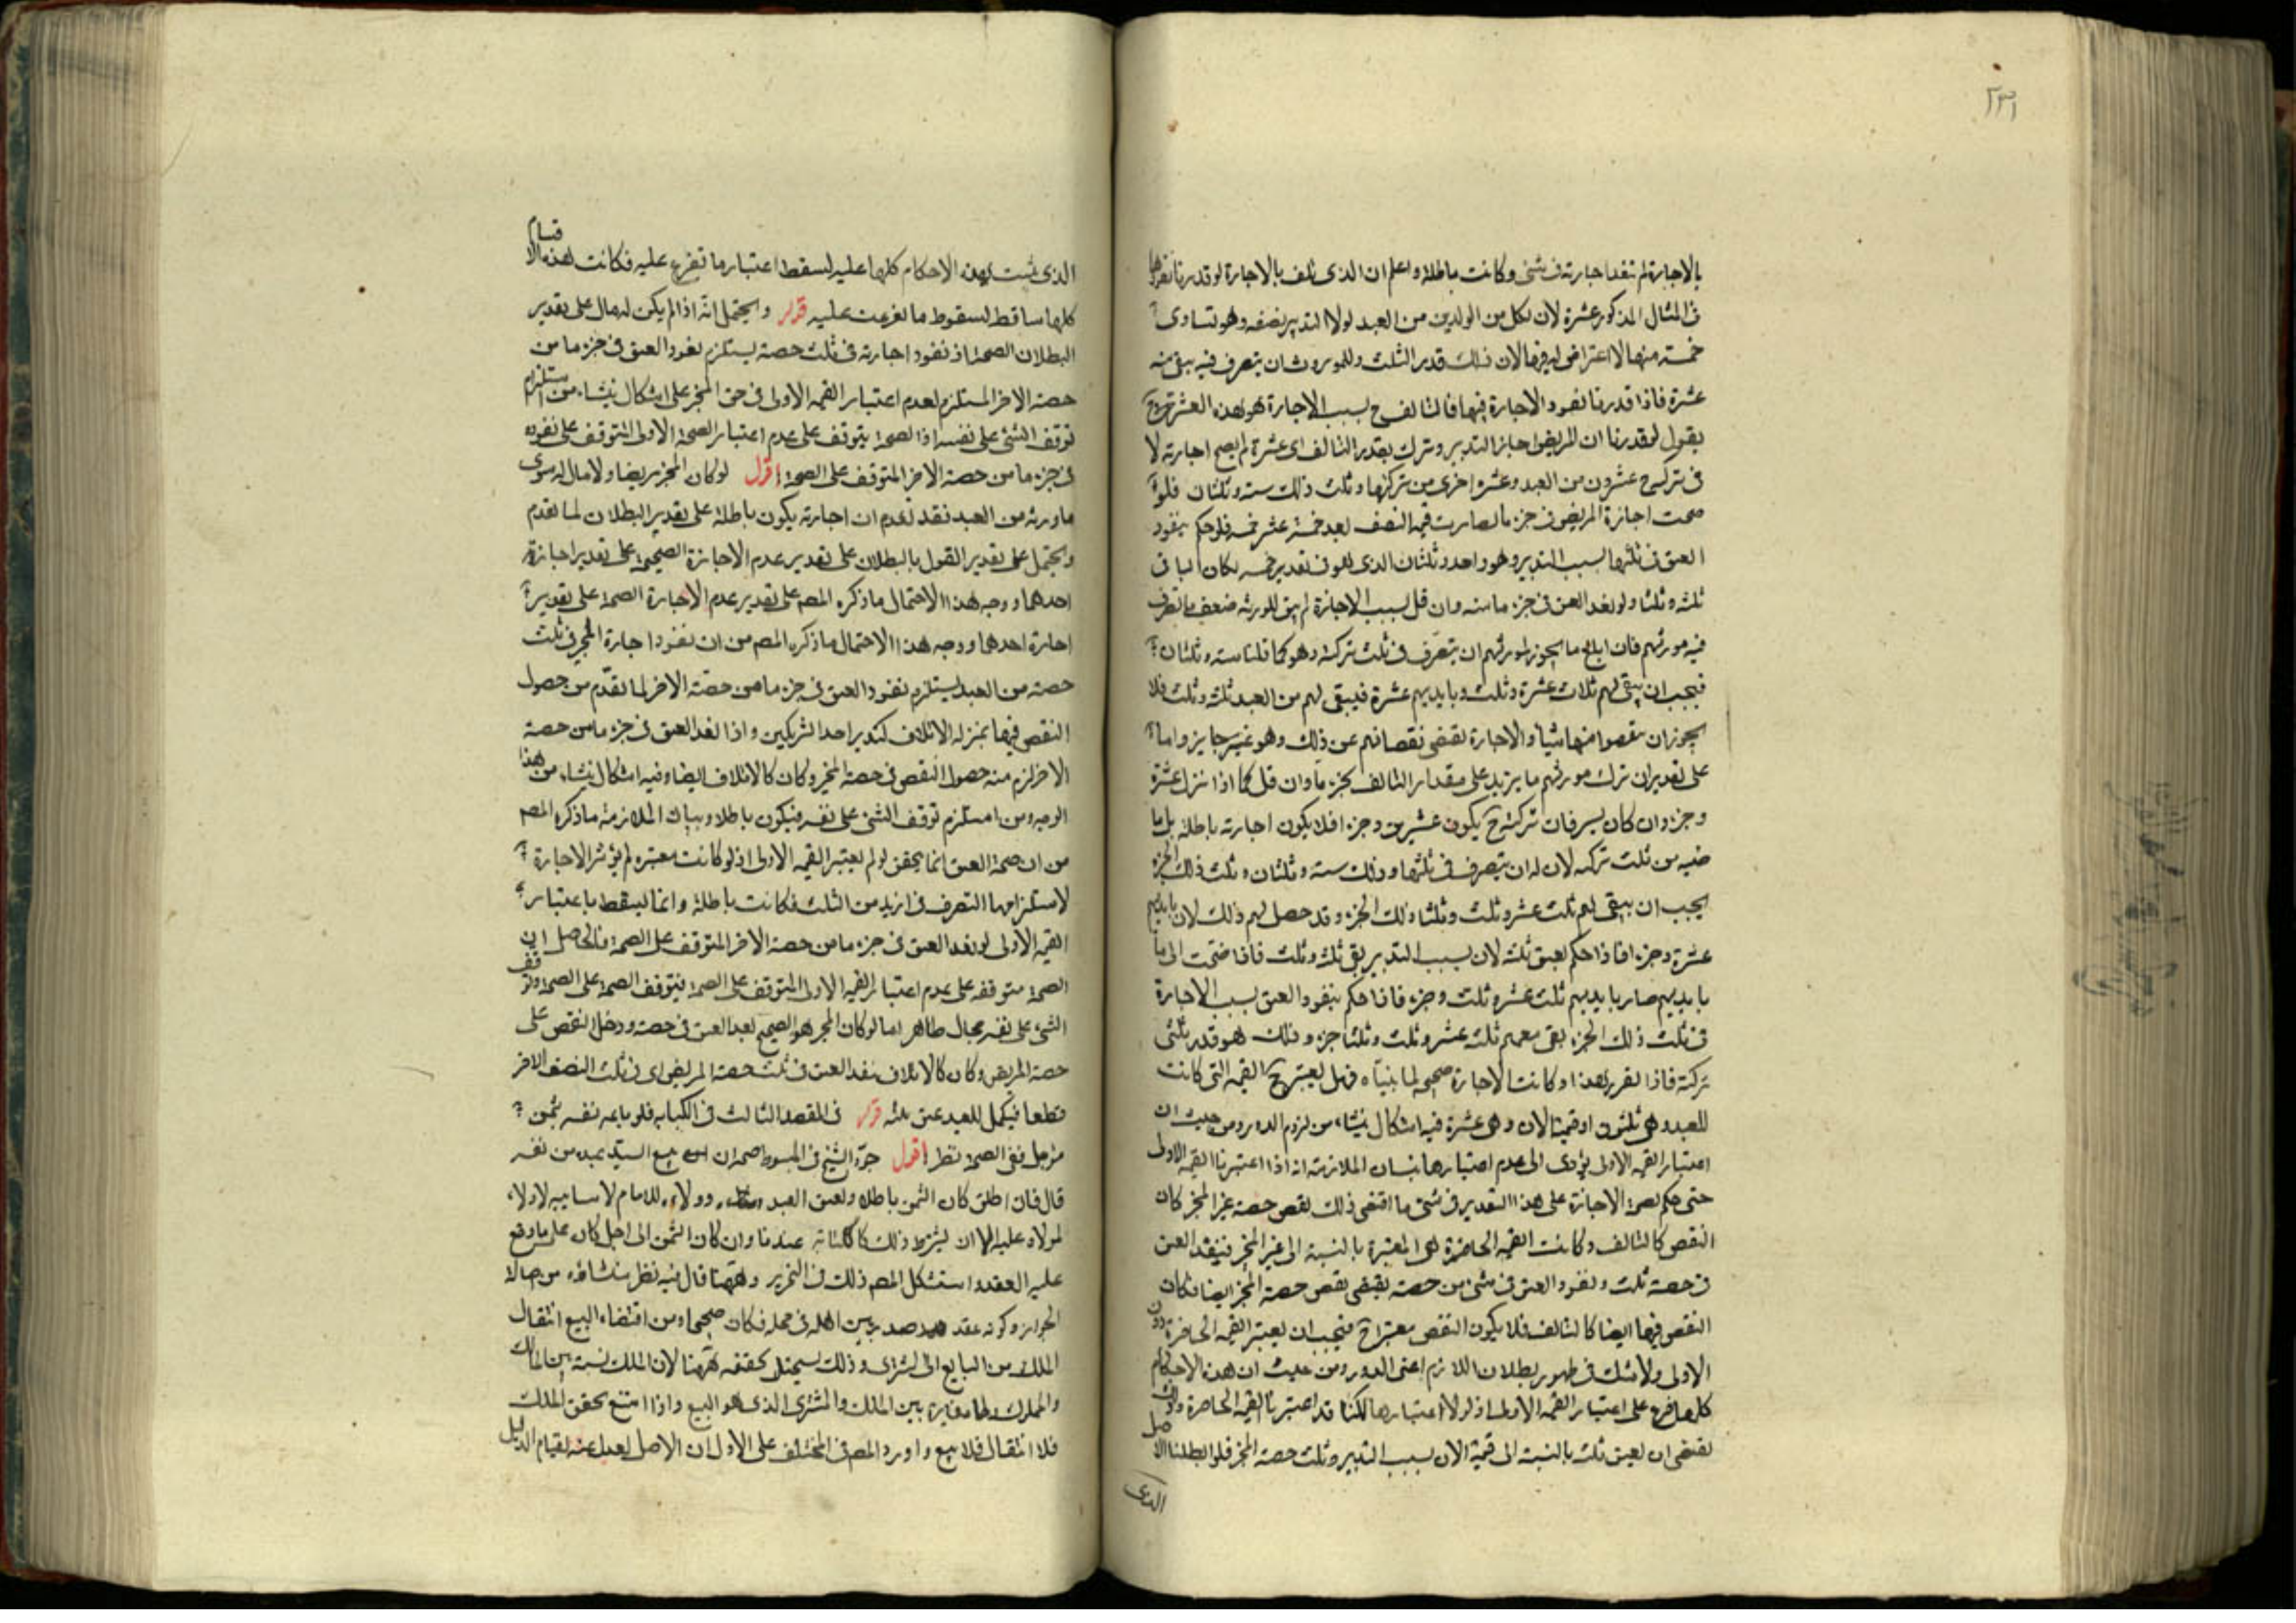 ٢٣١
بالاجازة لم تنفذ اجازته فى شئ وكانت باطلة واعلم ان الذى تلف بالاجازة لو قدرنا نفوذها
فى المثال المذكور عشرة لان لكل من الولدين من العبد لولا التدبير نصفه وهو تساوى
خمسة منها لا اعتراض له فيها لان ذلك قدر الثلث وللموروث ان يتصرف فيه يبقى منه
عشرة فاذا قدرنا نفوذ الاجازة فيها فالتالف ح بسبب الاجازة هو هذه العشرة ح
يقول لو قدرنا ان المريض اجاز التدبير وترك بقدر التالف اى عشرة لم يصح اجازته لا
فى تركته ح عشرون من العبد وعشرة اخرى من تركتها وثلث ذلك ستة وثلثان فلو
صحت اجازة المريض فى جزء ما لصارت قيمة النصف بعد خمسة عشر خمسة فلو حكم بنفوذ
العتق فى ثلثها بسبب التدبير وهو واحد وثلثان الذى هو فى تقدير خمسة لكان الباقى
ثلثة وثلثا ولو نفذ العتق فى جزء ما منه وان قل بسبب الاجازة لم يبق للورثة ضعف ما تصرف
فيه مورثهم فان ابلغ ما يجوز لمورثهم ان يتصرف فى ثلث تركته وهو كما قلنا ستة وثلثان
فيجب ان يبقى لهم ثلاث عشرة وثلث وبايديهم عشرة فيبقى لهم من العبد ثلثة وثلث فلا
يجوز ان ينقصوا منها شيئا والاجازة تقتضى نقصانهم عن ذلك وهو غير جايز واما
على تقدير ان ترك مورثهم ما يزيد على مقدار التالف بجزء ما وان قل كما اذا ترك عشرة
وجزء وان كان يسيرا فان تركته ح يكون عشرين وجزء فلا يكون اجازته باطلة بل ما
ضيه من ثلث تركه لان له ان يتصرف فى ثلثها وذلك ستة وثلثان وثلث ذلك الجزء
يجب ان يبقى لهم ثلث عشر وثلث وثلثا ذلك الجزء وقد حصل لهم ذلك لان بايديهم
عشرة وجزء فاذا حكم بعتق ثلثه لان بسبب التدبير بقى ثلث وثلث فاذا ضمت الى ما
بايديهم صار بايديهم ثلث عشر وثلث وجزء فاذا حكم بنفوذ العتق بسبب الاجازة
فى ثلث ذلك الجزء بقى معهم ثلثة عشر وثلث وثلثا جزء وذلك هو قدر ثلثى
تركته فاذا تقرر هذا وكانت الاجازة صحيحة لما بيناه فهل يعتبر ح القيمة التى كانت
للعبد وهى ثلثون او قيمته الان وهى عشرة فيه اشكال ينشاء من لزوم الدور ومن حيث ان
اعتبار القيمة الاولى يؤدى الى عدم اعتبارها بيان الملازمة انه اذا اعتبرنا القيمة الاولى
حتى حكم بصحة الاجازة على هذا التقدير فى شئ ما اقتضى ذلك نقص حصة غير المجز كان
النقص كالتالف وكانت القيمة الحاضرة هى المعتبرة بالنسبة الى غير المجز فينفذ العتق
فى حصة ثلث ونفوذ العتق فى شئ من حصته يقتضى نقص حصة المجز ايضا فكان
النقص فيها ايضا كالتالف فلا يكون النقص معتبرا ح فيجب ان يعتبر القيمة الحاضرة دون
الاولى ولا شك فى ظهور بطلان اللازم اعنى الدور ومن حيث ان هذه الاحكام
كلها فرع على اعتبار القيمة الاولى اذ لولا اعتبارها لكنا قد اعتبرنا القيمة الحاضرة وذلك
يقتضى ان يعتق ثلث بالنسبة الى قيمة الان بسبب التدبير وثلث حصة المجز فلو ابطلنا الاصل
الذى
الذى ثبت بهذه الاحكام كلها عليه لسقط اعتبار ما تفرع عليه فكانت هذه الاقسام
كلها ساقط لسقوط ما تفرعت عليه قوله ويحتمل انه اذا لم يكن له مال على تقدير
البطلان الصحة اذ نفوذ اجازته فى ثلث حصته يستلزم نفوذ العتق فى جزء ما من
حصة الاخر المستلزم لعدم اعتبار القيمة الاولى فى حق المجز على اشكال ينشاء من استلزام
توقف الشئ على نفسه اذ الصحة يتوقف على عدم اعتبار الصحة الاولى المتوقف على نفوذه
فى جزء ما من حصة الاخر المتوقف على الصحة اقول لو كان المجز مريضا ولا مال له سوى
ما ورثه من العبد فقد تقدم ان اجازته يكون باطلة على تقدير البطلان لما تقدم
ويحتمل على تقدير القول بالبطلان على تقدير عدم الاجازة الصحيحة على تقدير اجازة
احدهما ووجه هذا الاحتمال ما ذكره المصم على تقدير عدم الاجازة الصحة على تقدير
اجازة احدهما ووجه هذا الاحتمال ما ذكره المصم من ان نفوذ اجازة المجز فى ثلث
حصته من العبد يستلزم نفوذ العتق فى جزء ما من حصة الاخر لما تقدم من حصول
النقص فيها بمنزلة الاتلاف كتدبير احد الشريكين واذا نفذ العتق فى جزء ما من حصة
الاخر لزم منه حصول النقص فى حصة المجز وكان كالاتلاف ايضا وفيه اشكال ينشاء من هذا
الوجه ومن استلزم توقف الشئ على نفسه فيكون باطلا وبيان الملازمة ما ذكره المصم
من ان صحة العتق انما يتحقق لو لم يعتبر القيمة الاولى اذ لو كانت معتبرة لم يؤثر الاجازة
لاستلزامها التصرف فى ازيد من الثلث فكانت باطلة وانما يسقط باعتبار
القيمة الاولى لو نفذ العتق فى جزء ما من حصة الاخر المتوقف على الصحة فالحاصل ان
الصحة متوقفة على عدم اعتبار القيمة الاولى المتوقف على الصحة فيتوقف الصحة على الصحة وتوقف
الشئ على نفسه محال ظاهر اما لو كان المجز هو الصحيح نفذ العتق فى حصته ودخل النقص على
حصة المريض وكان كالاتلاف نفذ العتق فى ثلث حصة المريض اى فى ثلث النصف الاخر
قطعا فيكمل للعبد عتق ثلثه قوله فى المقصد الثالث فى الكتابة فلو باعه نفسه بثمن
مؤجل ففى الصحة نظر اقول جوز الشيخ فى المبسوط صحة ان بيع السيد عبده من نفسه
قال فان اطلق كان الثمن باطلا ولعتق العبد وولاءه للامام لا سايبه لا ولاء
لمولاه عليه الا ان يشترط ذلك كالكتابة عندنا وان كان الثمن الى اجل كان على ما وقع
عليه العقد واستشكل المصم ذلك فى التحرير وههنا قال فيه نظر ينشاؤه من اصالة
الجواز وكونه عقد صدر بين اهله فى محله فكان صحيحا ومن اقتضاء البيع انتقال
الملك من البايع الى المشترى وذلك يستحيل تحققه ههنا لان الملك نسبة بين المالك
والمملوك ولها مغايرة بين المالك والمشترى الذى هو البيع واذا امتنع تحقق الملك
فلا انتقال فلا بيع واورد المصم فى المختلف على الاول ان الاصل يعدل عنه لقيام الدليل